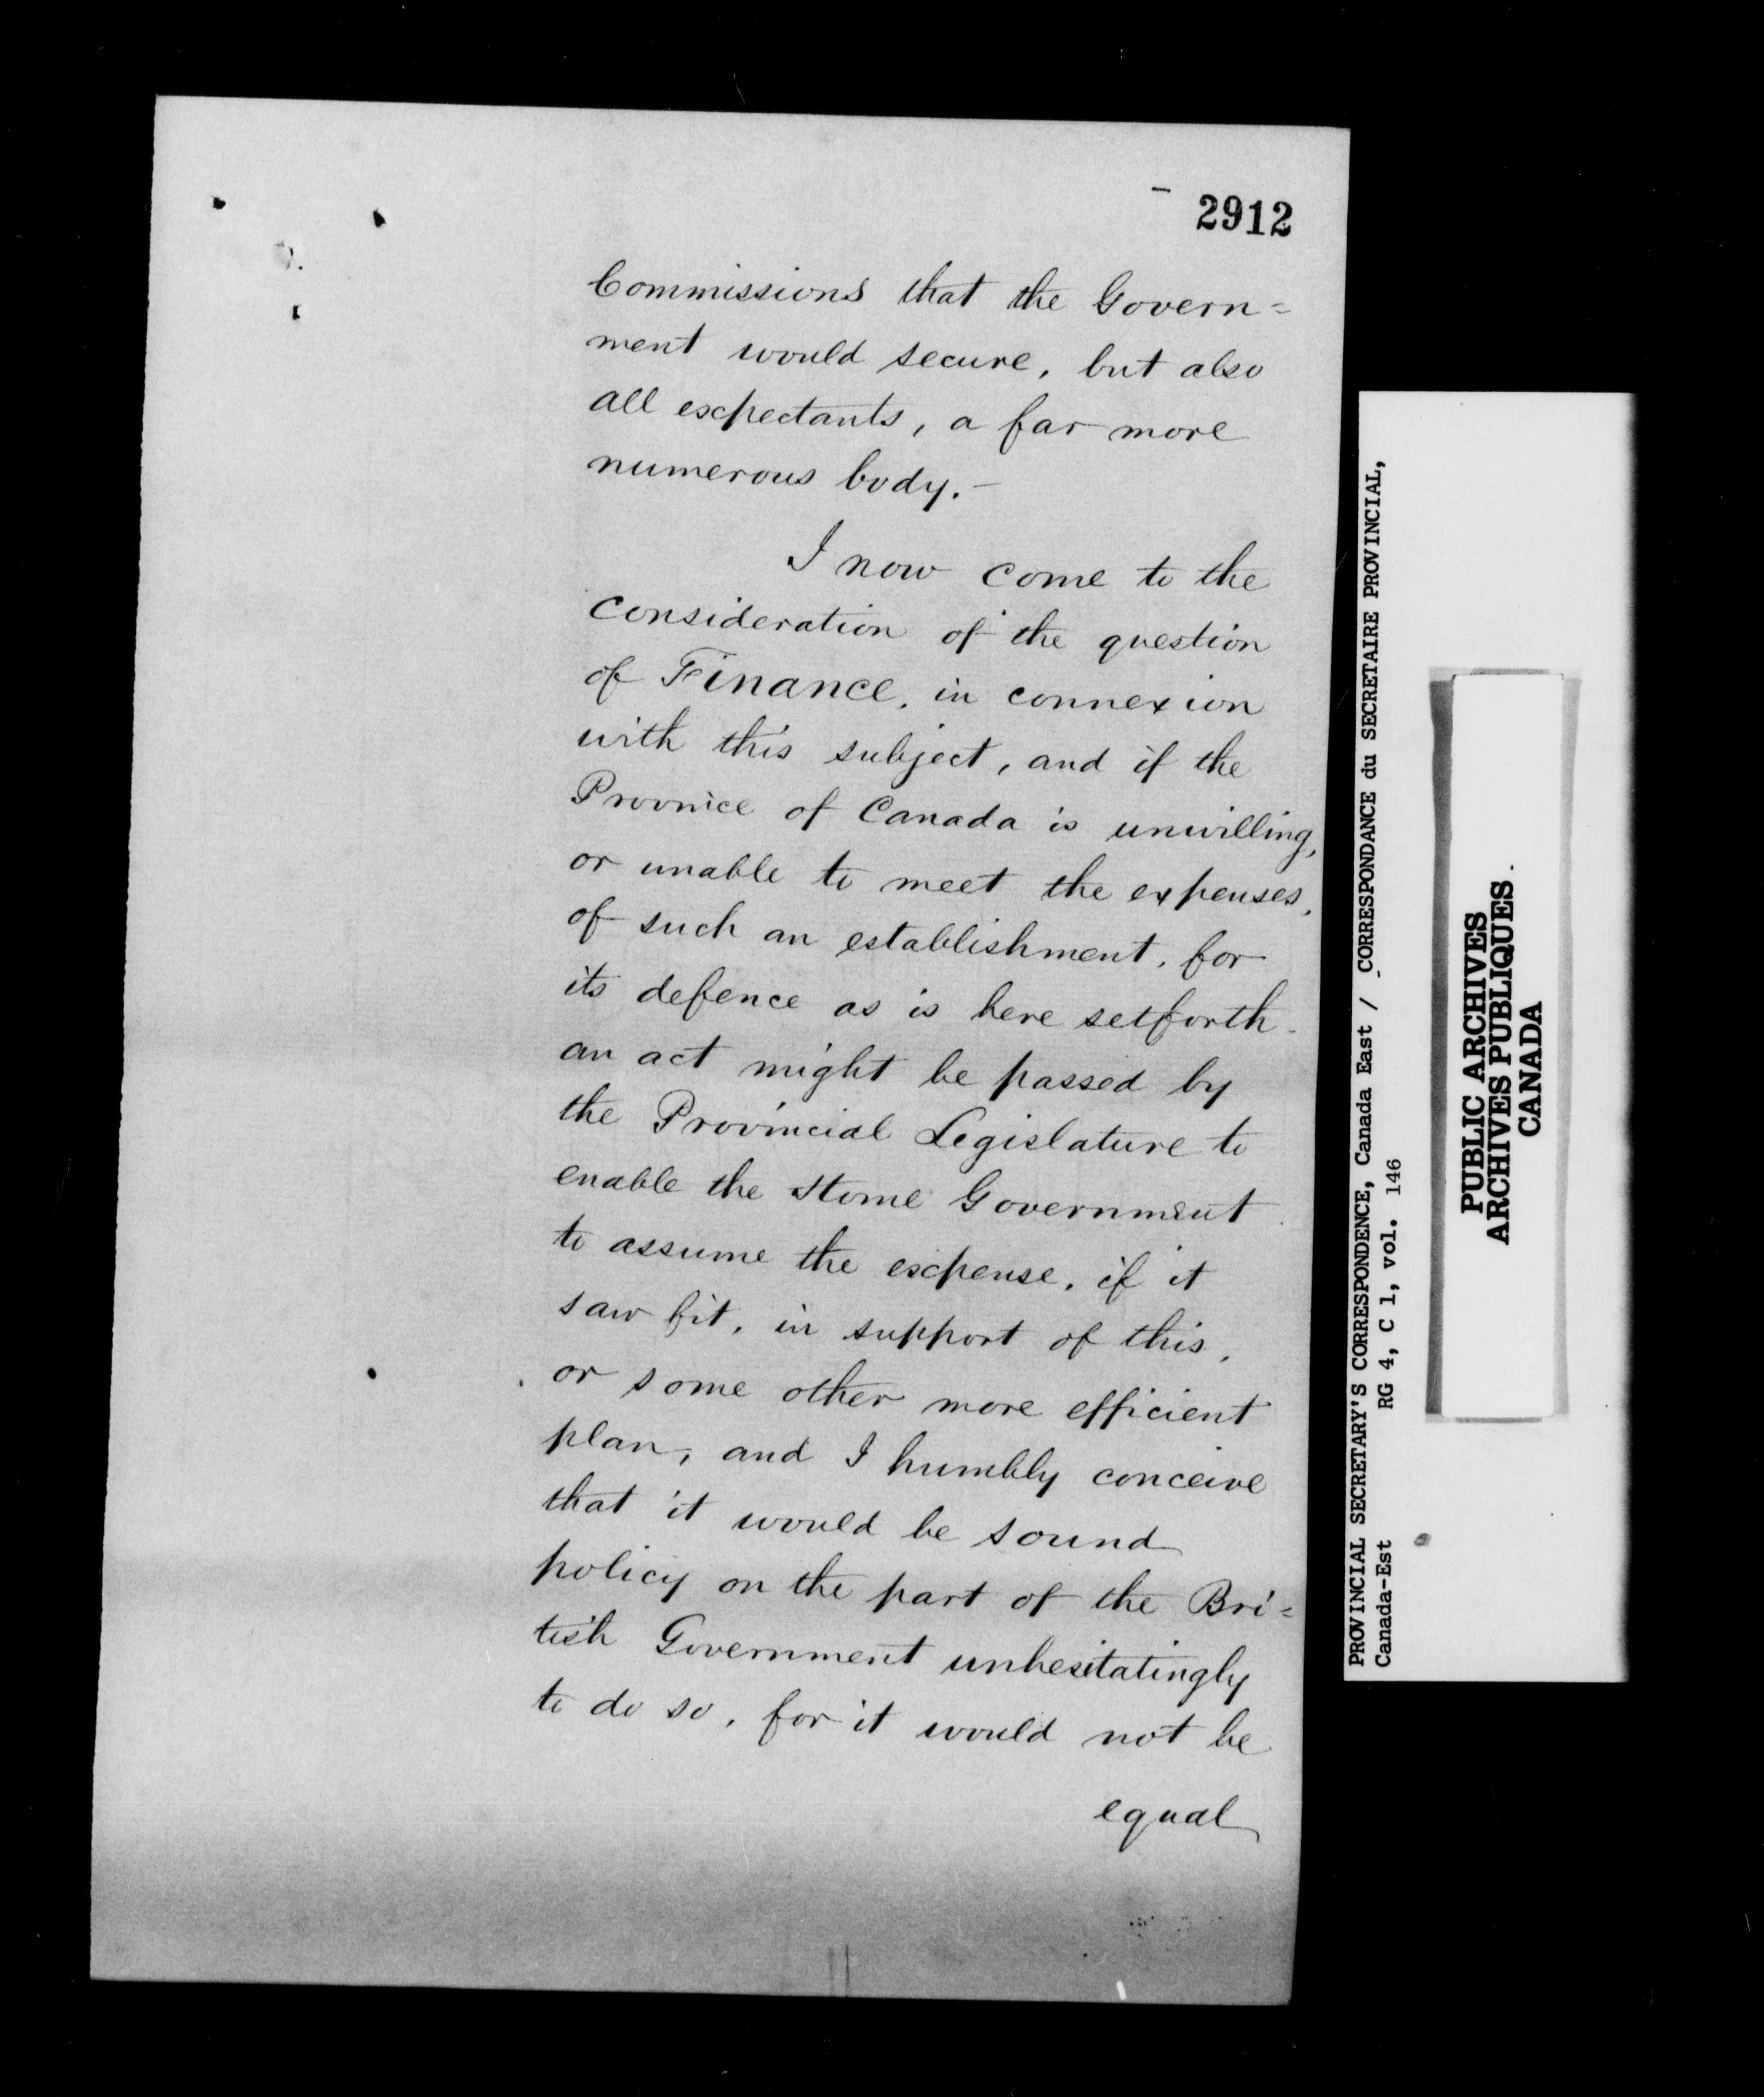 2912
Commissions that the Govern=
ment would secure, but also
all expectants, a far more
numerous body.-
I now come to the
consideration of the question
of Finance, in connexion
with this subject, and if the
Province of Canada is unwilling,
or unable to meet the expenses,
of such an establishment, for
its defence as is here setforth
an act might be passed by
the Provincial Legislature to
enable the Home Government
to assume the expense, if it
saw fit, in support of this,
or some other more efficient
plan, and I humbly conceive
that it would be sound
policy on the part of the Bri=
tish Government unhesitatingly
to do so, for it would not be
equal
PROVINCIAL SECRETARY'S CORRESPONDENCE, Canada East / CORRESPONDANCE du SECRETAIRE PROVINCIAL,
Canada-Est RG 4, C 1, vol. 146
PUBLIC ARCHIVES
ARCHIVES PUBLIQUES
CANADA